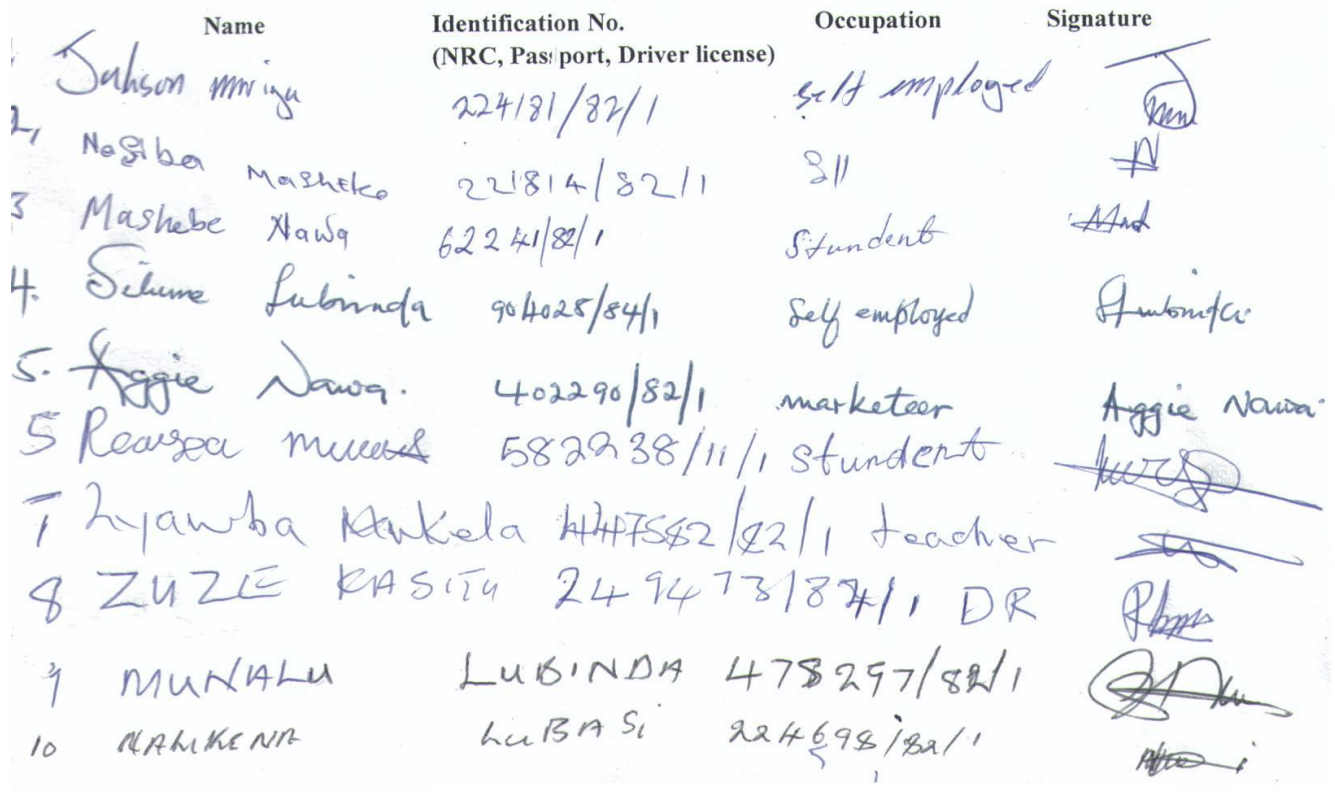 Name Identification No. Occupation Signature
(NRC, Passport, Driver license)
224181/82/1 self employed
2, Nasiba Masheke 221814/82/1 SII
3 Mashebe Nawa 62241/82/1 Stundent
4. Silume Lubinda 904028/84/1 Self employed
5. Aggie Nawa. 402290/82/1 marketeer Aggie Nawa
5 582238/11/1 stundent
7 Lyamba Mukela 447582/82/1 teacher
8 ZUZE KASITU 249473/87/1 DR
9 MUNALU LUBINDA 478297/82/1
10 NAMKENA LUBASI 224698/82/1